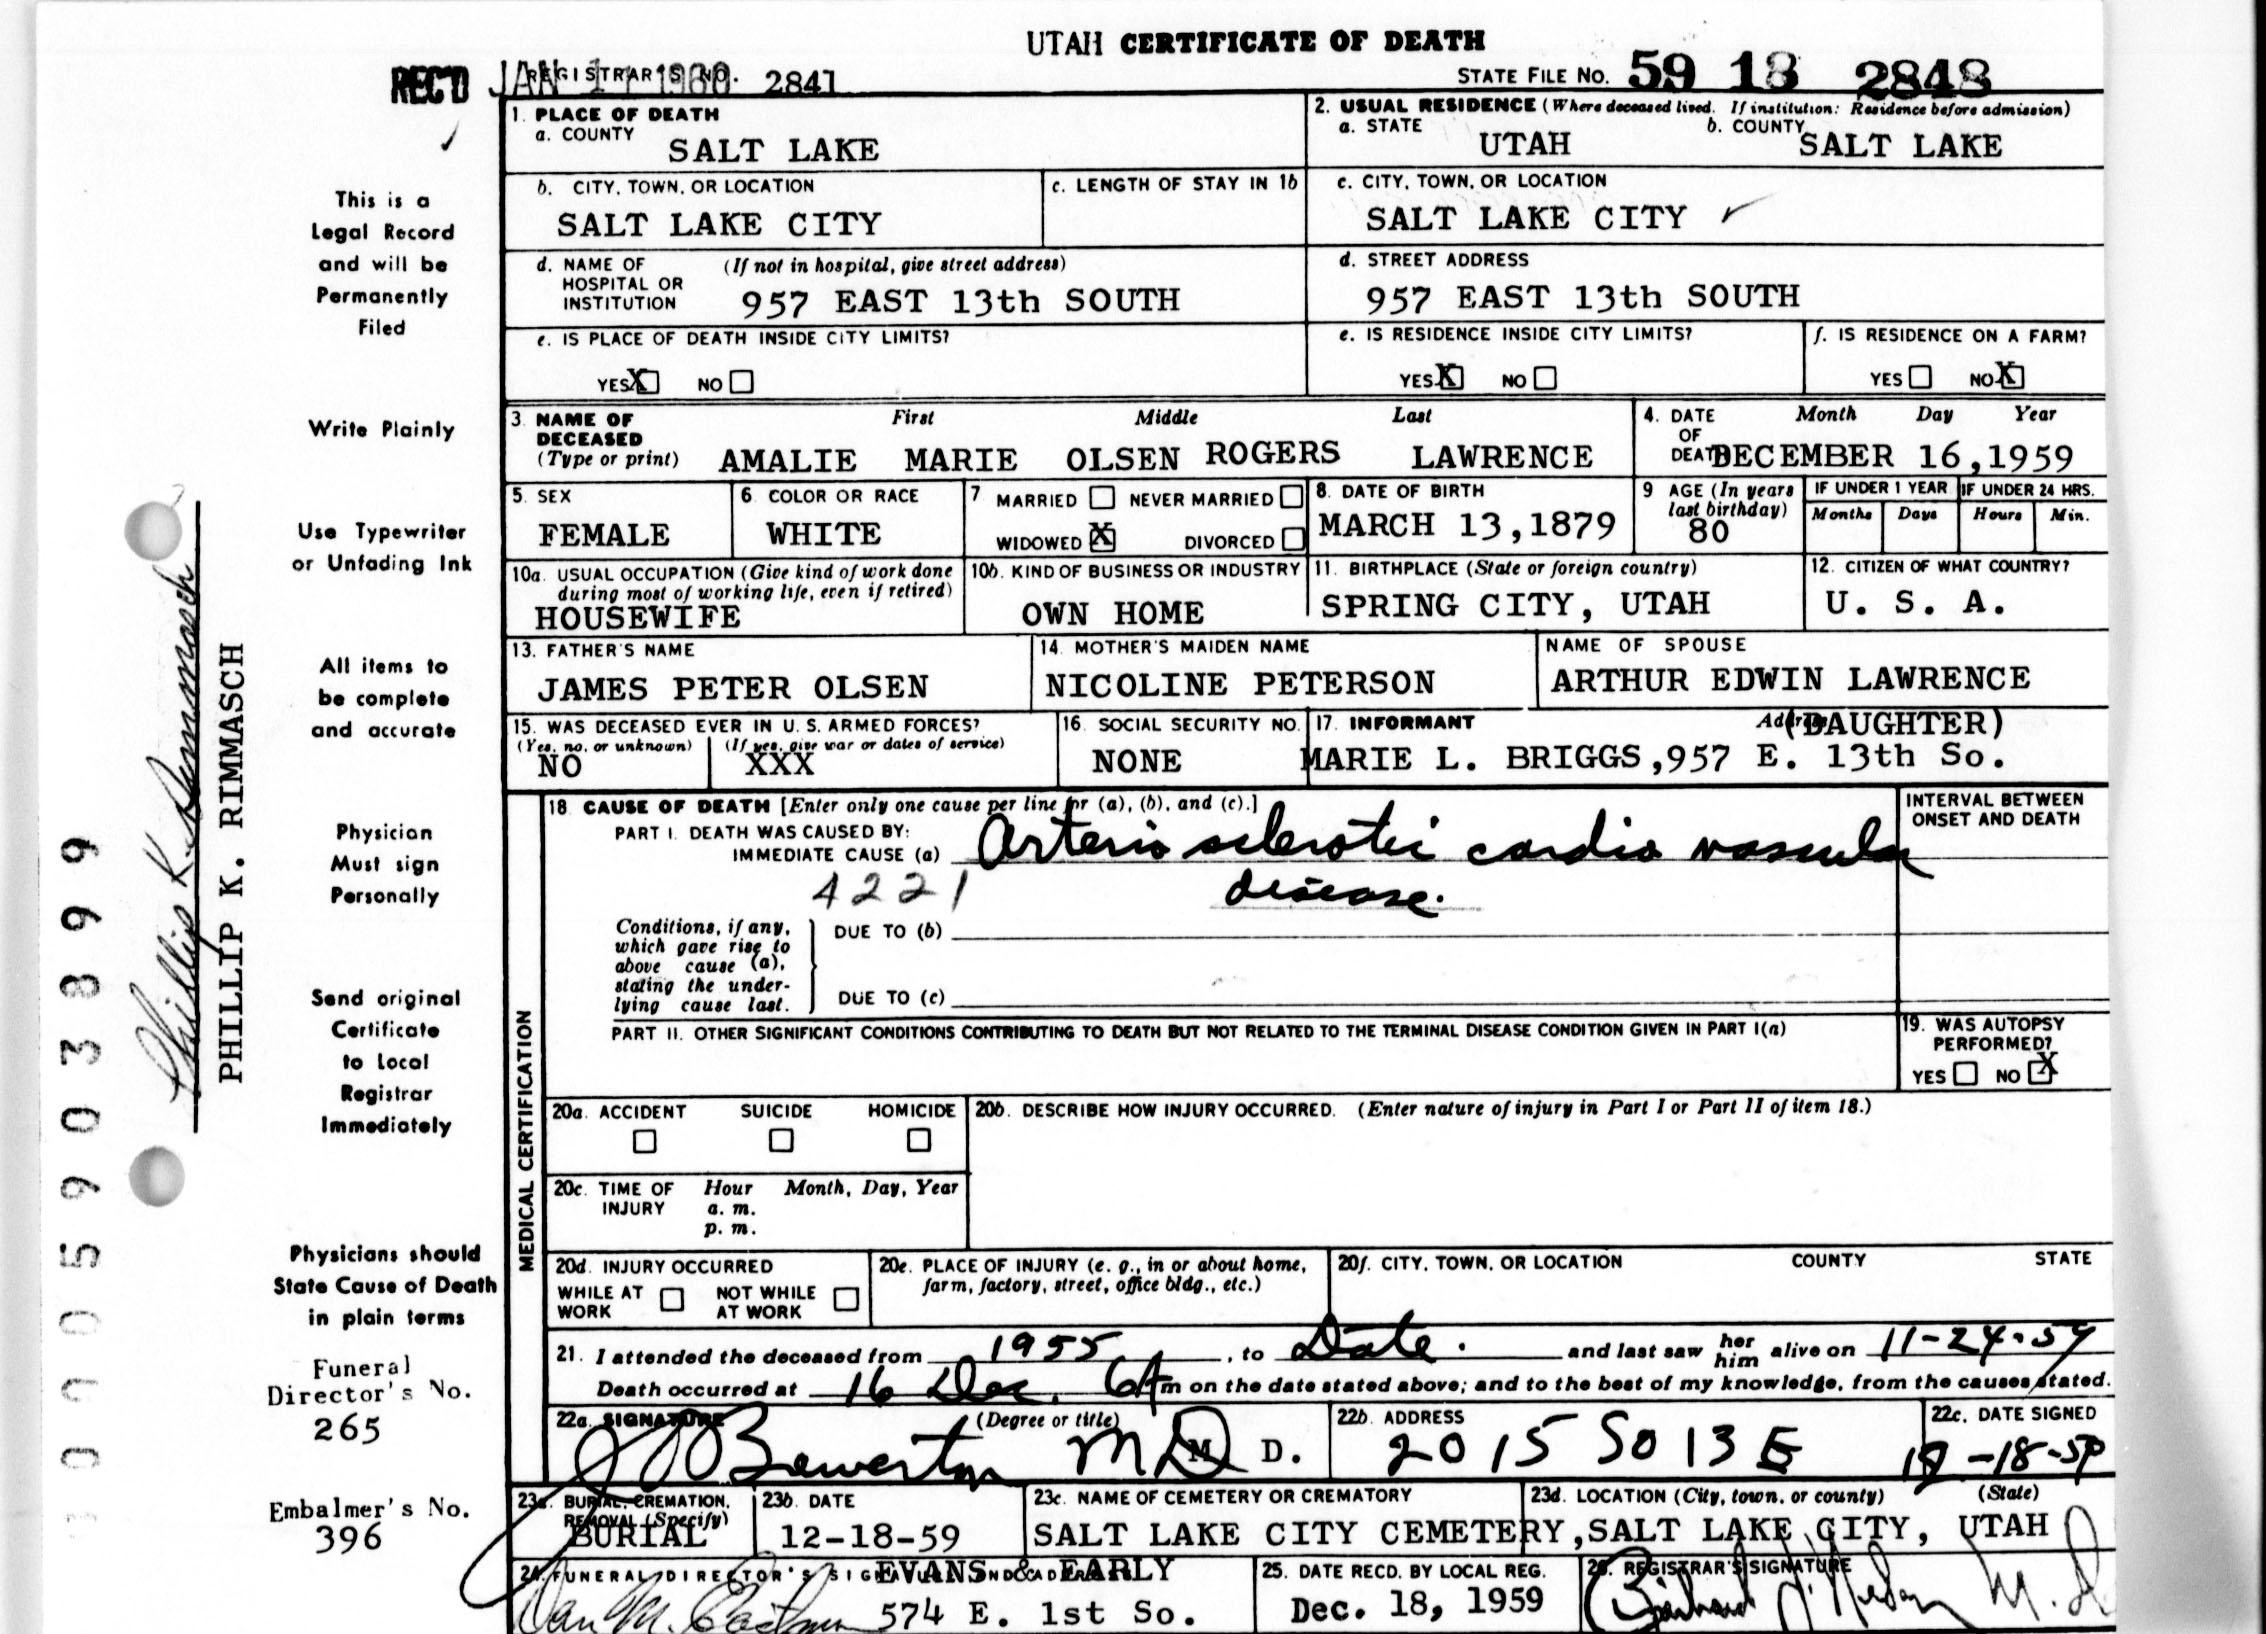 UTAH CERTIFICATE OF DEATH
REC'D JAN 1960 REGISTRAR'S NO. 2841
STATE FILE NO. 59 18 2848
1. PLACE OF DEATH
a. COUNTY SALT LAKE
2. USUAL RESIDENCE (Where deceased lived. If institution: Residence before admission)
a. STATE UTAH b. COUNTY SALT LAKE
b. CITY, TOWN, OR LOCATION SALT LAKE CITY
c. LENGTH OF STAY IN 1b
c. CITY, TOWN, OR LOCATION SALT LAKE CITY
d. NAME OF HOSPITAL OR INSTITUTION (If not in hospital, give street address)
957 EAST 13th SOUTH
d. STREET ADDRESS
957 EAST 13th SOUTH
e. IS PLACE OF DEATH INSIDE CITY LIMITS?
YES X NO
e. IS RESIDENCE INSIDE CITY LIMITS?
YES X NO
f. IS RESIDENCE ON A FARM?
YES NO X
3. NAME OF DECEASED (Type or print) First Middle Last
AMALIE MARIE OLSEN ROGERS LAWRENCE
4. DATE OF DEATH Month Day Year
DECEMBER 16,1959
5. SEX FEMALE
6. COLOR OR RACE WHITE
7 MARRIED NEVER MARRIED
WIDOWED X DIVORCED
8. DATE OF BIRTH MARCH 13,1879
9 AGE (In years last birthday) 80
IF UNDER 1 YEAR Months Days
IF UNDER 24 HRS. Hours Min.
10a. USUAL OCCUPATION (Give kind of work done during most of working life, even if retired)
HOUSEWIFE
10b. KIND OF BUSINESS OR INDUSTRY
OWN HOME
11. BIRTHPLACE (State or foreign country)
SPRING CITY, UTAH
12. CITIZEN OF WHAT COUNTRY?
U. S. A.
13. FATHER'S NAME
JAMES PETER OLSEN
14. MOTHER'S MAIDEN NAME
NICOLINE PETERSON
NAME OF SPOUSE
ARTHUR EDWIN LAWRENCE
15. WAS DECEASED EVER IN U. S. ARMED FORCES?
(Yes, no, or unknown) (If yes, give war or dates of service)
NO XXX
16. SOCIAL SECURITY NO.
NONE
17. INFORMANT Address (DAUGHTER)
MARIE L. BRIGGS,957 E. 13th So.
MEDICAL CERTIFICATION
18. CAUSE OF DEATH [Enter only one cause per line for (a), (b), and (c).]
PART I. DEATH WAS CAUSED BY:
IMMEDIATE CAUSE (a) Arterio sclerotic cardio vascular
4221 disease.
INTERVAL BETWEEN ONSET AND DEATH
Conditions, if any, which gave rise to above cause (a), stating the underlying cause last.
DUE TO (b)
DUE TO (c)
PART II. OTHER SIGNIFICANT CONDITIONS CONTRIBUTING TO DEATH BUT NOT RELATED TO THE TERMINAL DISEASE CONDITION GIVEN IN PART I(a)
19. WAS AUTOPSY PERFORMED?
YES NO X
20a. ACCIDENT SUICIDE HOMICIDE
20b. DESCRIBE HOW INJURY OCCURRED. (Enter nature of injury in Part I or Part II of item 18.)
20c. TIME OF INJURY Hour a. m. p. m. Month, Day, Year
20d. INJURY OCCURRED
WHILE AT WORK NOT WHILE AT WORK
20e. PLACE OF INJURY (e. g., in or about home, farm, factory, street, office bldg., etc.)
20f. CITY, TOWN, OR LOCATION COUNTY STATE
21. I attended the deceased from 1955, to Date. and last saw her him alive on 11-24-59
Death occurred at 16 Dec. 6A m on the date stated above; and to the best of my knowledge, from the causes stated.
22a. SIGNATURE (Degree or title)
Bewerton MD M. D.
22b. ADDRESS
2015 So 13 E
22c. DATE SIGNED
12-18-59
23a. BURIAL, CREMATION, REMOVAL (Specify)
BURIAL
23b. DATE
12-18-59
23c. NAME OF CEMETERY OR CREMATORY
SALT LAKE CITY CEMETERY,
23d. LOCATION (City, town, or county) (State)
SALT LAKE CITY, UTAH
24. FUNERAL DIRECTOR'S SIGNATURE AND ADDRESS
EVANS & EARLY
574 E. 1st So.
25. DATE RECD. BY LOCAL REG.
Dec. 18, 1959
26. REGISTRAR'S SIGNATURE
M. D.
This is a
Legal Record
and will be
Permanently
Filed
Write Plainly
Use Typewriter
or Unfading Ink
All items to
be complete
and accurate
Physician
Must sign
Personally
Send original
Certificate
to Local
Registrar
Immediately
Physicians should
State Cause of Death
in plain terms
Funeral
Director's No.
265
Embalmer's No.
396
Phillip K. Rimmasch
PHILLIP K. RIMMASCH
005903899